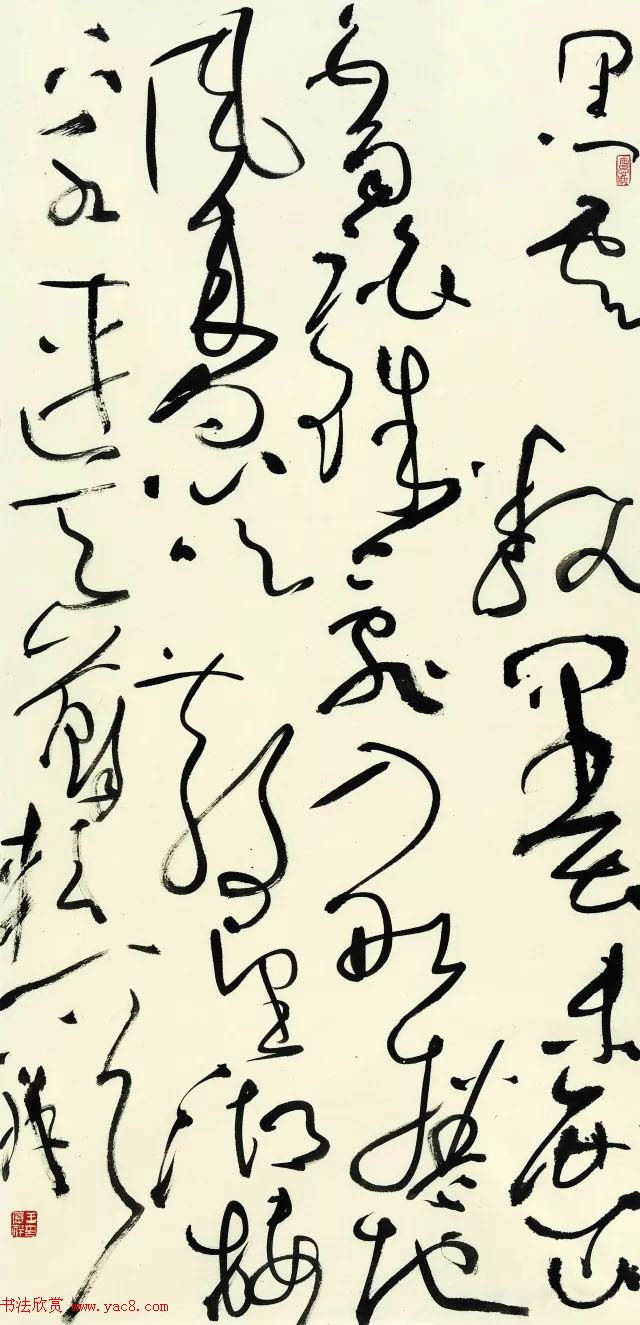 黑云翻墨未遮山
白雨跳珠乱入船卷地
风来忽吹散望湖楼
下水連天蘇軾
书法欣赏 www.yac8.com